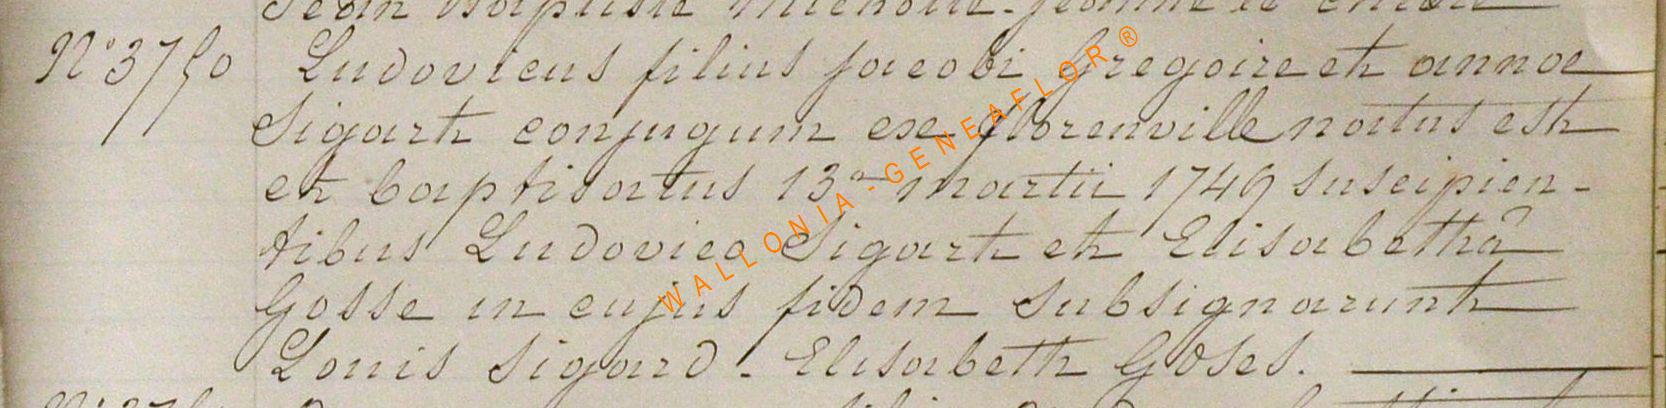 Jean Baptiste
N° 3750 Ludovicus filius jacobi Gregoire et annae
Sigart conjugum ex florenville natus est
et baptisatus 13a martii 1749 suscipien-
tibus Ludovico Sigart et Elisabethâ
Gosse in cujus fidem subsignarunt
Louis Sigard - Elisabeth Goses.
WALLONIA-GENEAFLOR®